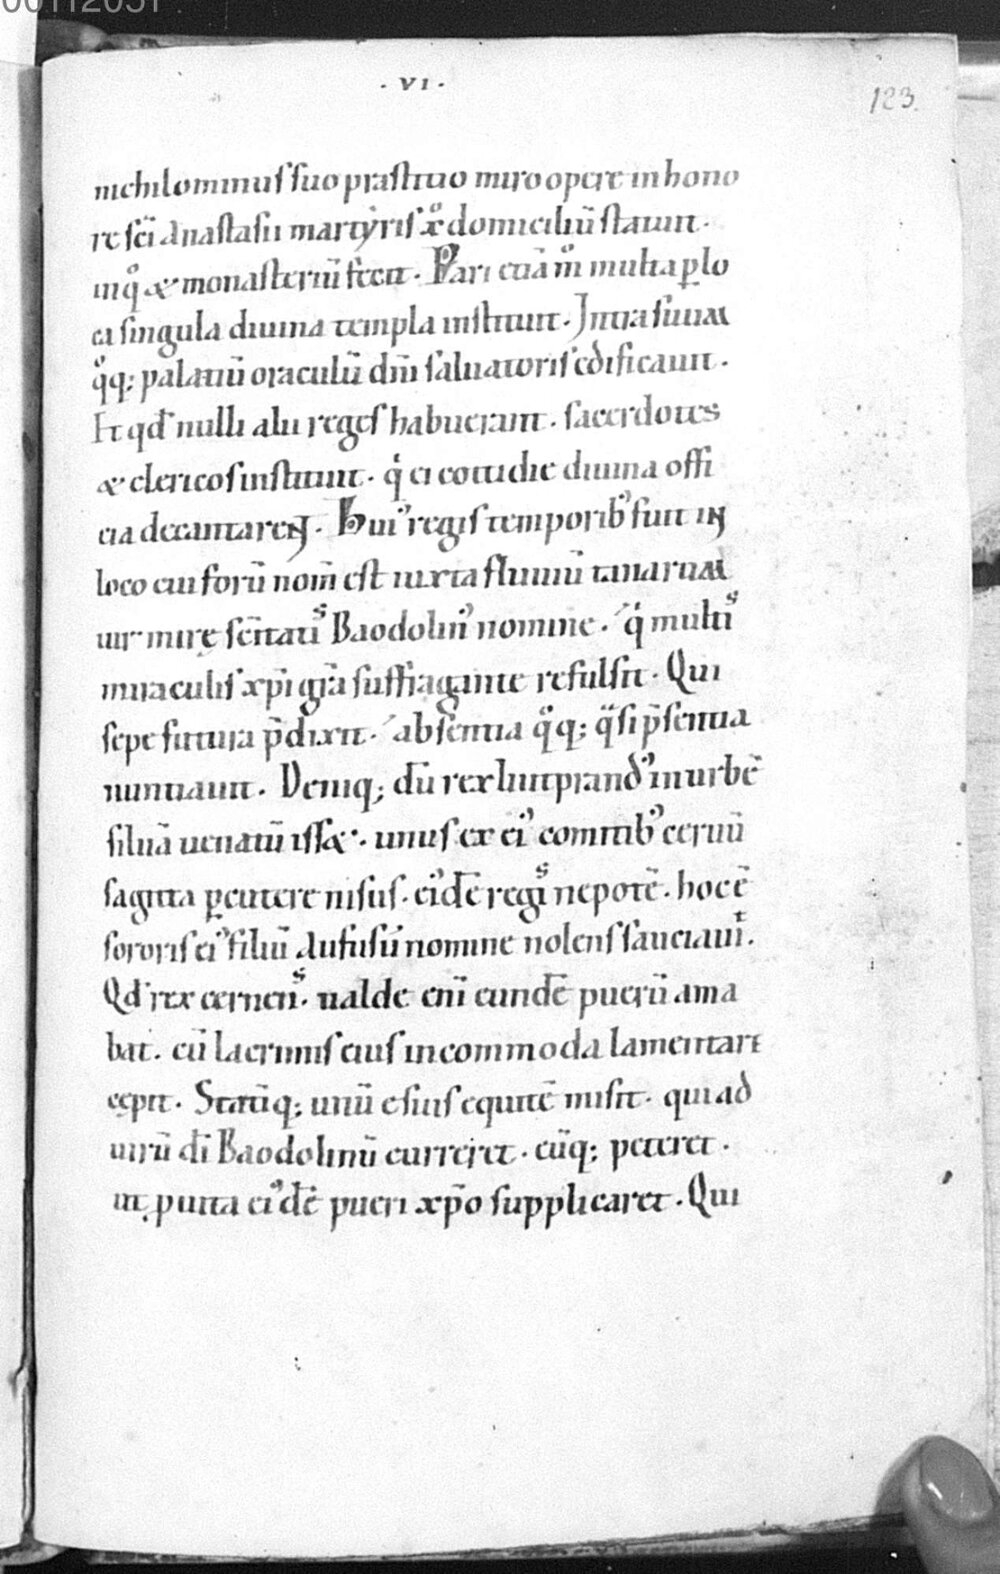 00112051
· VI ·
123.
nichilominus suo prastituo miro opere in hono
re sc̄i Anastasii martẏris xͦ domiciliū statuit ·
inqͦ & monasteriū fecit · Pari etiā mͦ multa ꝑ lo
ca singula diuina templa instituit · Intra suum
qͦq; palatiū oraculū dn̄i saluatoris edificauit ·
Et qd̄ nulli alii reges habuerant · sacerdotes
& clericos instituit · qͥ ei cottidie diuina offi
cia decantarent · Hui' regis temporib' fuit in
loco cui forū nom̄ est iuxta fluuiū tanarum
uir mirę sc̄itatiˢ Baodolin' nomine · qͥ multiˢ
miraculis xp̄i gr̄a suffragante refulsit · Qui
sepe futura p̄dixit · absentia qͦq; qͣsi p̄sentia
nuntiauit · Deniq; dū rex liutprand' in urbē
siluā uenatū iss& · unus ex ei' comitib' ceruū
sagitta ꝑcutere nisus · ei'dē regiˢ nepotē · hoc ē
sororis ei' filiū Aufusū nomine nolens sauciauiᵗ ·
Qd' rex cerneniˢ · ualde eni̅ eundē puerū ama
bat · cū lacrimis eius incommoda lamentari
cępit · Statīq; unū e suis equitē misit · qui ad
uirū dī Baodolinū curreret · eūq; peteret ·
ut ꝓ uita ei'dē pueri xp̄o supplicaret · Qui